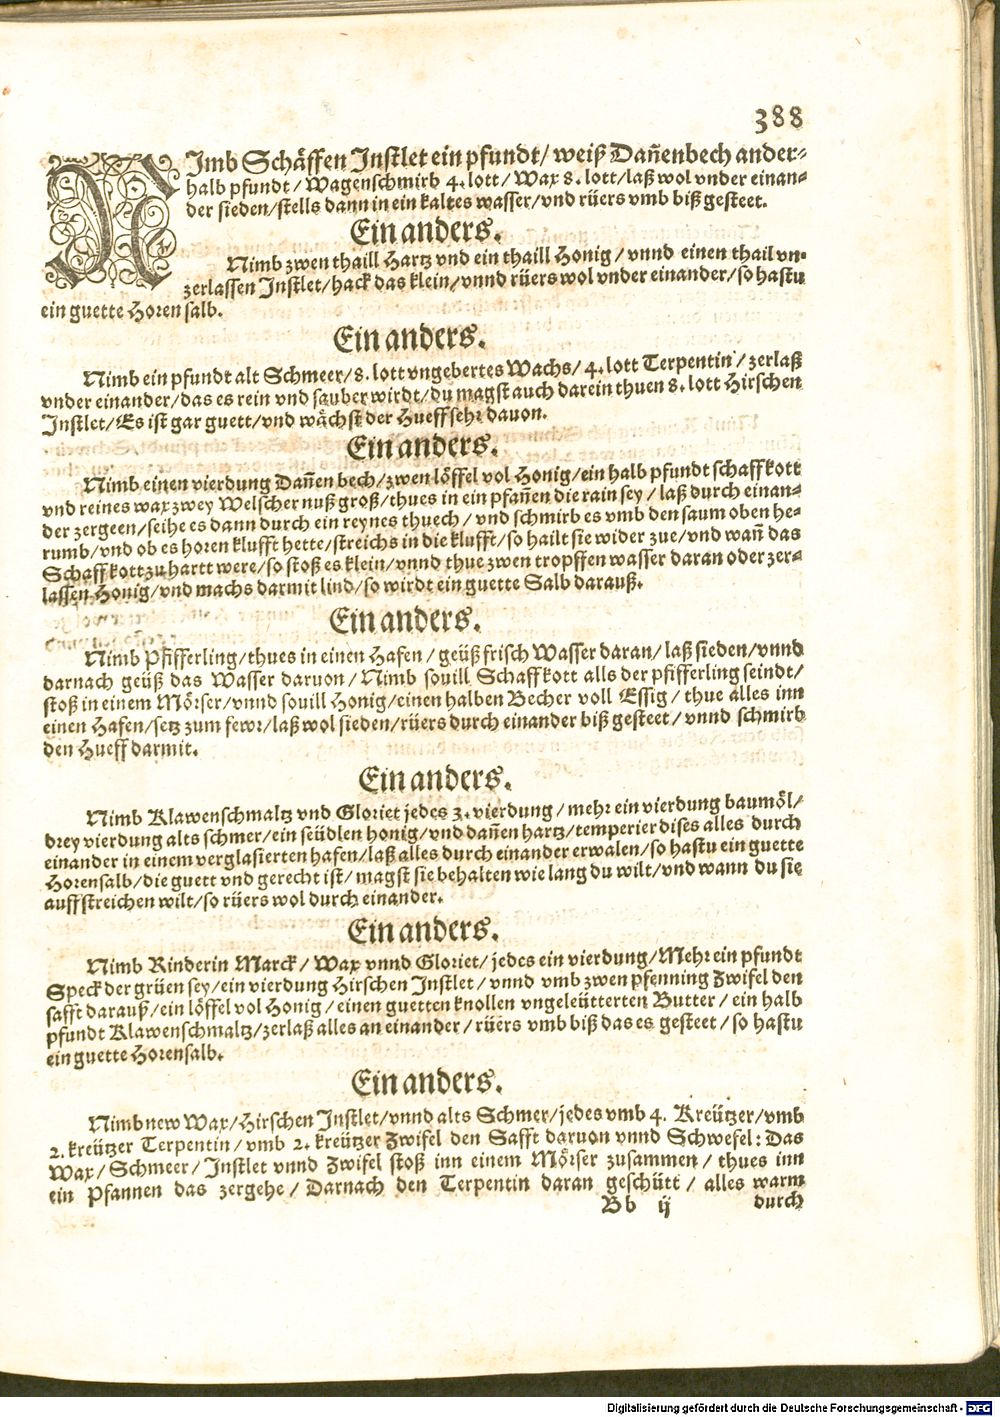 388
NImb Schäffen Inſtlet ein pfundt/ weiß Dañenbech ander-
halb pfundt/ Wagenſchmirb 4. lott/ Wax 8. lott/ laß wol vnder einan-
der ſieden/ ſtells dann in ein kaltes waſſer/ vnd rüers vmb biß geſteet.
Ein anders.
Nimb zwen thaill Hartz vnd ein thaill Honig/ vnnd einen thail vn-
zerlaſſen Inſtlet/ hack das klein/ vnnd rüers wol vnder einander/ ſo haſtu
ein guette Horen ſalb.
Ein anders.
Nimb ein pfundt alt Schmeer/ 8. lott vngebertes Wachs/ 4. lott Terpentin/ zerlaß
vnder einander/ das es rein vnd ſauber wirdt/ du magſt auch darein thuen 8. lott Hirſchen
Inſtlet/ Es iſt gar guett/ vnd wächſt der Hueff ſehr dauon.
Ein anders.
Nimb einen vierdung Dañen bech/ zwen löffel vol Honig/ ein halb pfundt ſchaffkott
vnd reines wax zwey Welſcher nuß groß/ thues in ein pfañen die rain ſey/ laß durch einan-
der zergeen/ ſeihe es dann durch ein reynes thuech/ vnd ſchmirb es vmb den ſaum oben he-
rumb/ vnd ob es horen klufft hette/ ſtreichs in die klufft/ ſo hailt ſie wider zue/ vnd wañ das
Schaffkott zu hartt were/ ſo ſtoß es klein/ vnnd thue zwen tropffen waſſer daran oder zer-
laſſen Honig/ vnd machs darmit lind/ ſo wirdt ein guette Salb darauß.
Ein anders.
Nimb Pfifferling/ thues in einen Hafen/ geüß friſch Waſſer daran/ laß ſieden/ vnnd
darnach geüß das Waſſer daruon/ Nimb ſouill Schaffkott alls der pfifferling ſeindt/
ſtoß in einem Mörſer/ vnnd ſouill Honig/ einen halben Becher voll Eſſig/ thue alles inn
einen Hafen/ ſetz zum fewr/ laß wol ſieden/ rüers durch einander biß geſteet/ vnnd ſchmirb
den Hueff darmit.
Ein anders.
Nimb Klawenſchmaltz vnd Gloriet jedes 3. vierdung/ mehr ein vierdung baumöl/
drey vierdung alts ſchmer/ ein ſeüdlen honig/ vnd dañen hartz/ temperier diſes alles durch
einander in einem verglaſierten hafen/ laß alles durch einander erwalen/ ſo haſtu ein guette
Horenſalb/ die guett vnd gerecht iſt/ magſt ſie behalten wie lang du wilt/ vnd wann du ſie
auffſtreichen wilt/ ſo rüers wol durch einander.
Ein anders.
Nimb Rinderin Marck/ Wax vnnd Gloriet/ jedes ein vierdung/ Mehr ein pfundt
Speck der grüen ſey/ ein vierdung Hirſchen Inſtlet/ vnnd vmb zwen pfenning Zwifel den
ſafft darauß/ ein löffel vol Honig/ einen guetten knollen vngeleütterten Butter/ ein halb
pfundt Klawenſchmaltz/ zerlaß alles an einander/ rüers vmb biß das es geſteet/ ſo haſtu
ein guette Horenſalb.
Ein anders.
Nimb new Wax/ Hirſchen Inſtlet/ vnnd alts Schmer/ jedes vmb 4. Kreützer/ vmb
2. kreützer Terpentin/ vmb 2. kreützer Zwifel den Safft daruon vnnd Schwefel: Das
Wax/ Schmeer/ Inſtlet vnnd Zwifel ſtoß inn einem Mörſer zuſammen/ thues inn
ein Pfannen das zergehe/ Darnach den Terpentin daran geſchütt/ alles warm
Bb ij durch
Digitalisierung gefördert durch die Deutsche Forschungsgemeinschaft - DFG